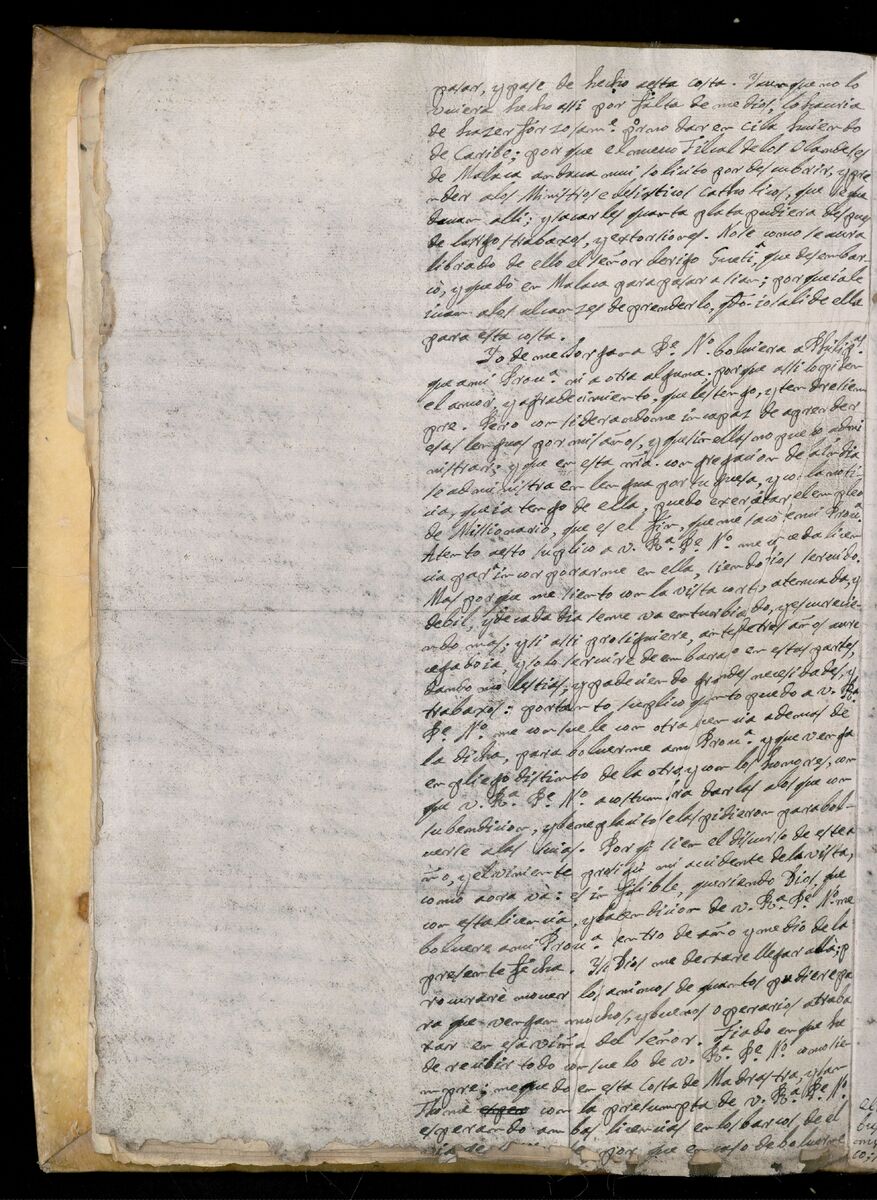 pasar, y pase de hecho a esta costa. Y aunque no lo
vuiera hecho assi por falta de medios, lo hauria
de hazer forzosamte. pr no dar en Cila huiendo
de Caribe; porque el nueuo Fiscal de los Olandeses
de Malaca andaua mui solicito por descubrir, y pre
nder a los Ministros eclesiasticos Catholicos, que
dauan alli; y sacarles quanta plata pudiera despues
de largos trabaxos, y extorsiones. No se como se aura
librado de ello el señor clerigo que desembar-
cò, y quedò en Malaca para pasar a Sian; porque ia le
iuan a los alcanzes de prenderlo, qdo. io sali de ella
para esta costa.
Yo de mejor gana Pe. No. boluiera a Philipas.
que a mi Proua. ni a otra alguna. porque assi lo piden
el amor, y agradecimiento, que les tengo, y tendre siem
pre. Pero considerandome incapaz de aprender
esas lenguas por mis años, y que sin ellas no puedo admi
nistrar; y que en esta nra. congregacion de la India
se administra en lengua portuguesa, y con la noti
cia, que ia tengo de ella, puedo exercitar el empleo
de Missionario, que es el fin, que me saco de mi Proua.
Atento a esto suplico a v. Ra. Pe. No. me conceda licen
cia para incorporarme en ella, siendo Dios seruido.
Mas porque me siento con la vista corta, atenuada, y
debil, y de cada dia se me va enturbiando, y escurecie
ndo mas; y si assi prosiguiere, antes de tres años aure
cegado ia, y solo seruire de embaraso en estas partes,
dando molestias, y padeciendo grandes necesidades, y
trabaxos: por tanto suplico quanto puedo a v. Ra.
Pe. No. me consuele con otra licencia ademas de
la dicha, para boluerme a mi Proua. y que venga
en pliego distinto de la otra, y con los honores, con
que v. Ra. Pe. No. acostumbra darlas a los que con
su bendicion, y beneplacito se las pidieron para bol-
uerse a las suias. Porq. si en el discurso de este a
ño, y el viniente prosigue mi accidente de la vista,
como aora và: es infalible, queriendo Dios, que
con esta licencia, y bendicion de v. Ra. Pe. No. me
boluere a mi Proua. dentro de año y medio de la
presente fecha. Y si Dios me dexare llegar allà; p
rocurarè mouer los animos de quantos pudiere pa
ra que vengan muchos, y buenos operarios a traba
xar en esa viña del señor. Fiado en que ha
de recibir todo consuelo de v. Ra. Pe. No. como sie
mpre; me quedo en esta costa de Madrasta, y san
Thome con la presumpta de v. Ra. Pe. No.
esperando ambas licencias en los barcos de el
por que en caso de boluerme